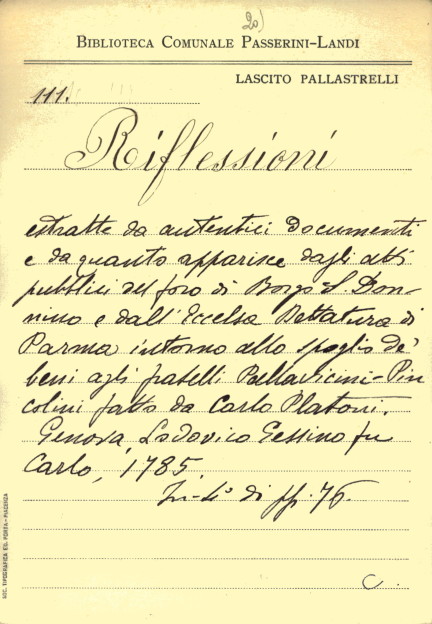 20)
BIBLIOTECA COMUNALE PASSERINI-LANDI
LASCITO PALLASTRELLI
111.
Riflessioni
estratte da autentici documenti
e da quanto apparisce dagli atti
pubblici del foro di Borgo S. Don-
nino e dall'Eccelsa Dettatura di
Parma intorno allo spoglio de'
beni agli fratelli Pallavicini-Pin
colini fatto da Carlo Platoni.
Genova, Lodovico Gessino fu
Carlo, 1785.
In-4° di pp. 76.
C.
SOC. TIPOGRAFICA ED. PORTA-PIACENZA